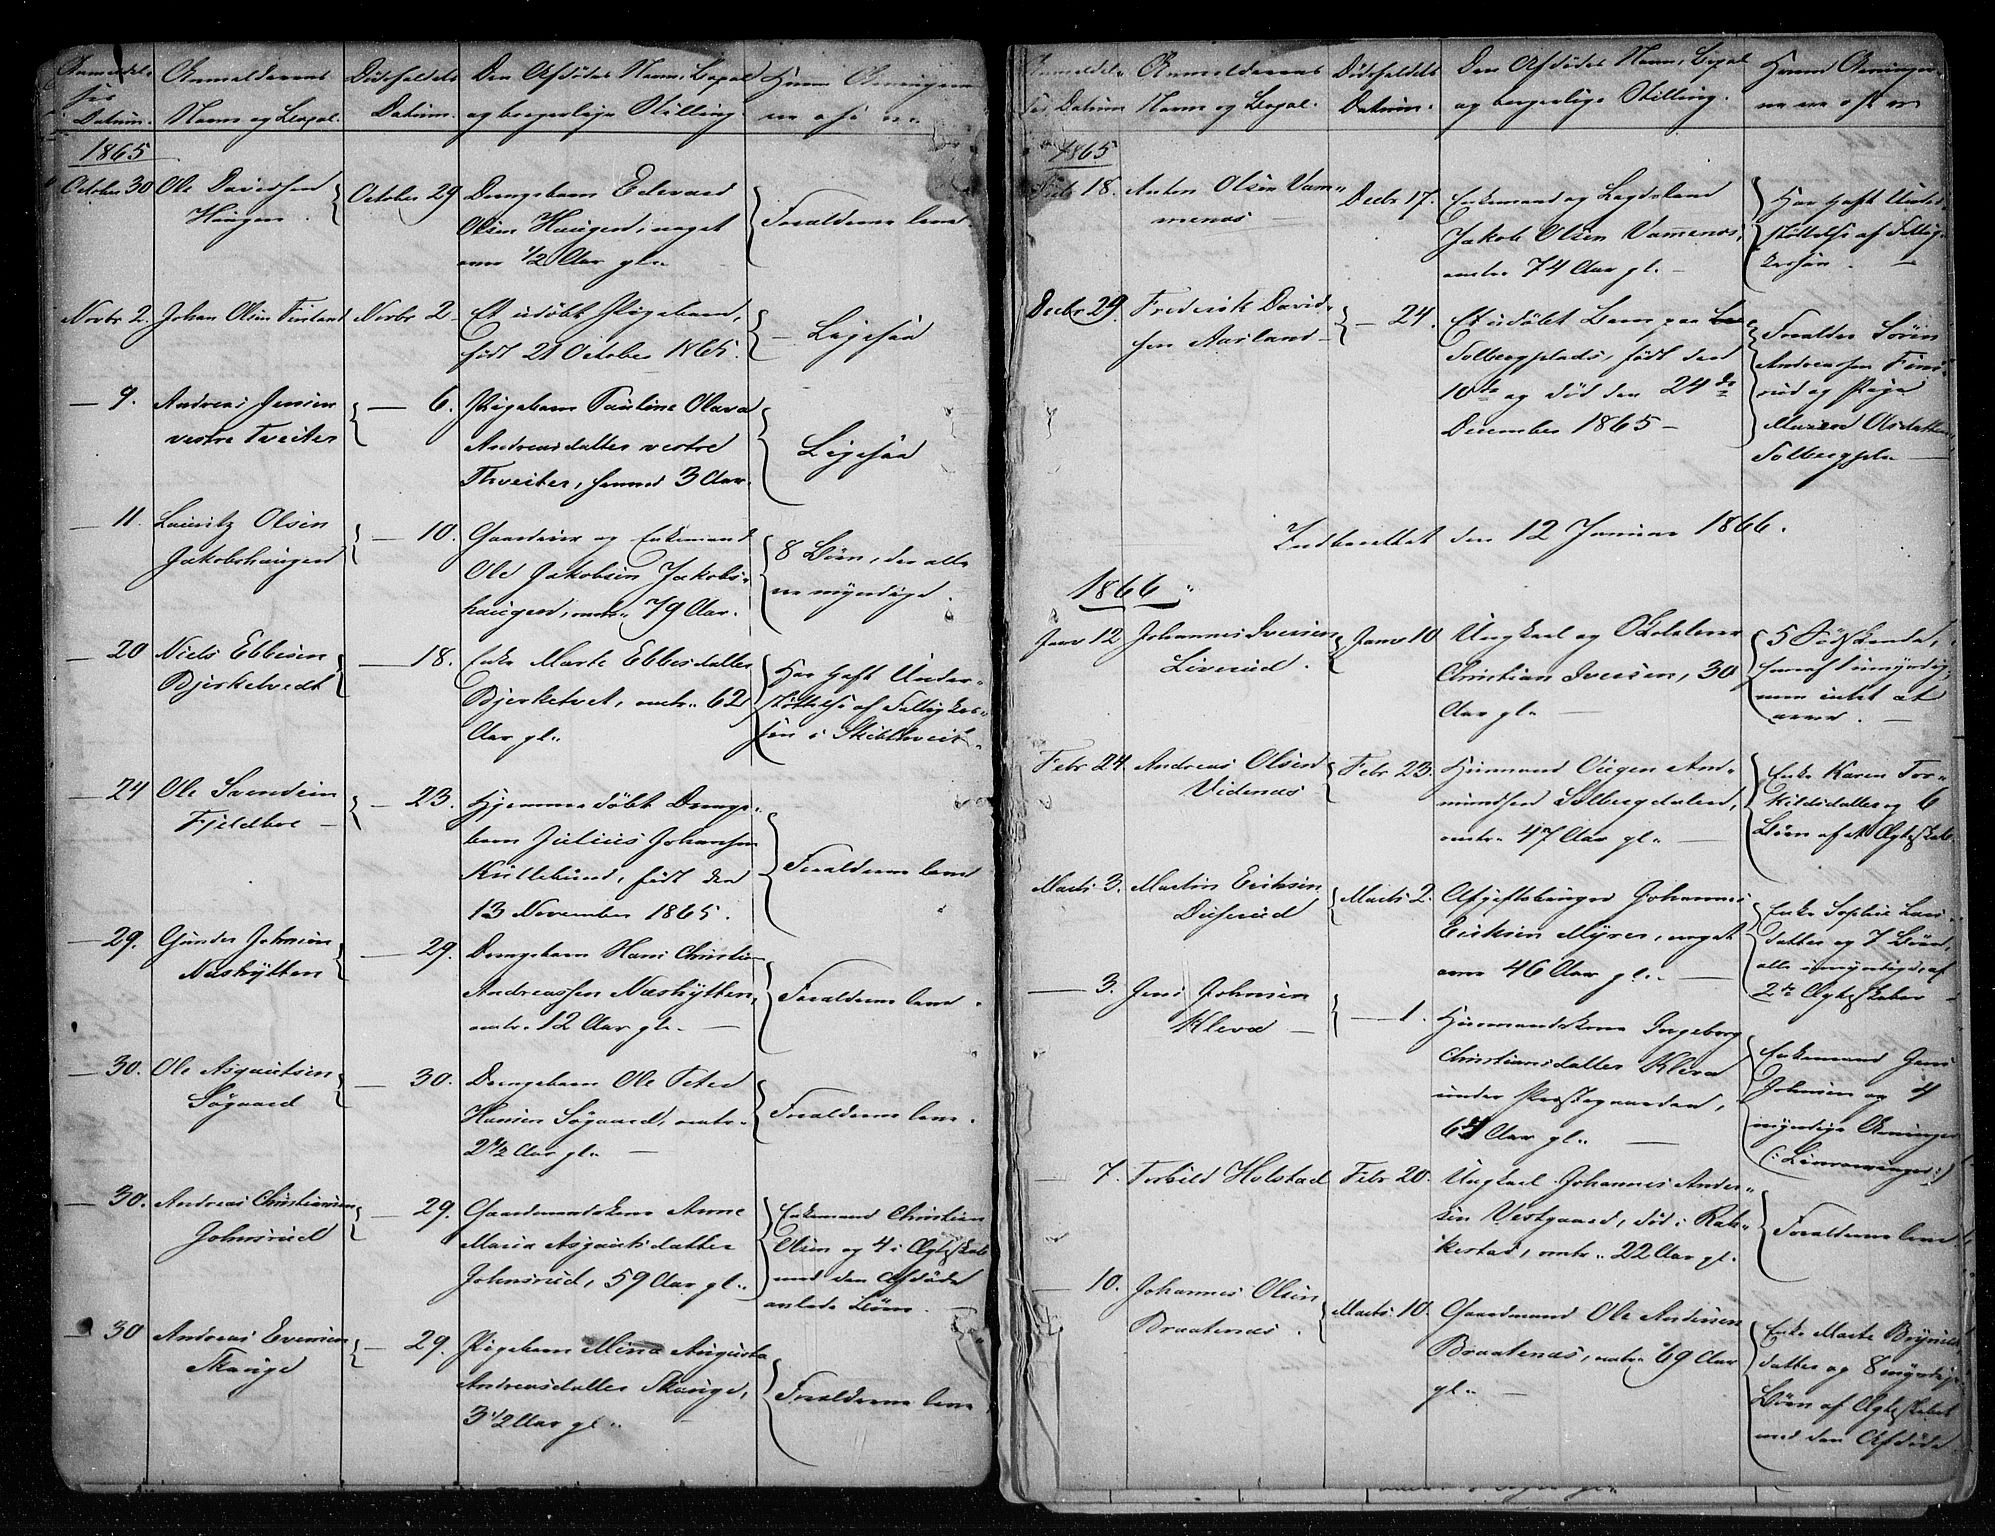 Anmeldel-
ses
Datum.
Anmelderens
Navn og Bopæl.
Dödsfaldets
Datum.
Den Afdödes Navn, Bopæl
og borgerlige Stilling.
Hvem Arvingerne
ere
1865
October 30
Ole Davidsen
Haugen
October 29
Drengebarn Edevard
Olsen Haugen, noget
over 1/2 Aar gl.
Forældrene leve
Novbr 2.
Johan Olsen Finland
Novbr 2.
Et udöbt Pigebarn,
födt 21 October 1865.
Ligesaa
— 9.
Andreas Jensen
vestre Tveiter
— 6.
Pigebarn Pauline Olava
Andreasdatter vestre
Thveiter, 3 Aar.
Ligesaa
— 11.
Lauritz Olsen
Jakobshaugen
— 10.
Gaardeier og Enkemand
Ole Jakobsen Jakobs-
haugen, omtr. 79 Aar.
8 Börn, der alle
ere myndige.
— 20
Niels Ebbesen
Bjerketvedt
— 18.
Enke Marte Ebbesdatter
Bjerketvet, omtr. 62
Aar gl.
Har havt Under-
stöttelse af Fattigkas-
sen i Skibthveit.
— 24
Ole Svendsen
Fjeldbre —
— 23.
Hjemmedöbt Drenge-
barn Julius Johansen
Kullebund, födt den
13 November 1865.
Forældrene leve
— 29.
Gunder Johnsen
Næshytten
— 29.
Drengebarn Hans Christian
Andreassen Næshytten,
omtr. 12 Aar gl. —
Forældrene leve.
— 30.
Ole Asgautsen
Sögaard
— 30.
Drengebarn Ole Peter
Hansen Sögaard, omtr.
2 1/2 Aar gl. —
Forældrene leve.
— 30.
Andreas Christiansen
Johnsrud
— 29.
Gaardmandskone Anne
Maria Asgautsdatter
Johnsrud, 59 Aar gl.
Enkemand Christian
Olsen og 4 i Ægteskab
med den Afdöde
avlede Börn. —
— 30
Andreas Evensen
Skauge
— 29.
Pigebarn Mina Augusta
Andreasdatter Skauge,
3 1/2 Aar gl. —
Forældrene leve
Anmeldel-
ses Datum
Anmelderens
Navn og Bopæl.
Dödsfaldets
Datum.
Den Afdödes Navn, Bopæl
og borgerlige Stilling.
Hvem Arvinger-
ne ere
1865
18.
Anton Olsen Vam-
menæs —
Decbr 17.
Enkemand og Lægdslem
Jakob Olsen Vamenæs,
omtr. 74 Aar gl. —
Har havt Under-
stöttelse af Fattig-
kassen. —
Decbr 29.
Frederik David-
sen Aasland —
— 24.
Et udöbt Barn paa
Solbergplads, födt den
10de og död den 24de
December 1865 —
Forældre Sören
Andreassen Fins-
rud og Pige
Maren Olsdatter
Solbergpl. —
Indberettet den 12 Januar 1866.
1866
Janr 12
Johannes Iversen
Liverud.
Janr 10
Ungkarl og
Christian Iversen, 30
Aar gl. —
5 Södskende,
hvoraf 1 umyndig,
men intet at
arve. —
Febr 24.
Andreas Olsen
Videnæs
Febr 23.
Huusmand Ougen Am-
mundsen Solbergdalen,
omtr. 47 Aar gl. —
Enke Karen Tor-
kildsdatter og 6
Börn af Ægteskab.
Marts 3.
Martin Eriksen
Duserud
Marts 2.
Afgiftsbruger Johannes
Eriksen Myrer, noget
over 46 Aar gl. —
Enke Sophie Lars-
datter og 7 Börn,
alle umyndige, af
2de Ægteskaber
— 3.
Jens Johnsen
Kleva —
— 1.
Huusmandskone Ingeborg
Christiansdatter Kleva
under Præstegaarden,
Aar gl. —
Enkemand Jens
Johnsen og
myndige Arvinger
(: Livsarvinger :)
— 7.
Torbild Holstad
Febr 20.
Ungkarl Johannes Ander-
sen Vestgaard, död i Rak-
kestad, omtr. 22 Aar gl.
Forældrene leve.
— 10.
Johannes Olsen
Braatenæs.
Marts 10.
Gaardmand Ole Andersen
Braatenæs, omtr. 69 Aar
gl. —
Enke Marte Brynild-
datter og 8 myndige
Börn af Ægteskabet
med den Afdöde.